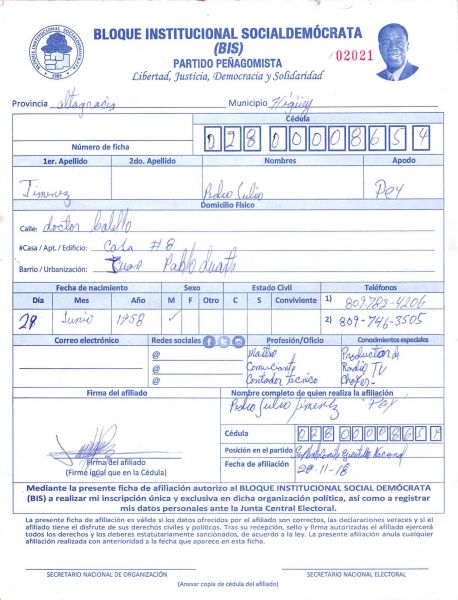 BLOQUE INSTITUCIONAL SOCIALDEMÓCRATA
(BIS)
PARTIDO PEÑAGOMISTA
Libertad, Justicia, Democracia y Solidaridad
02021
Provincia altagracia Municipio Higüey
Cédula
Número de ficha 028 0000865 4
1er. Apellido 2do. Apellido Nombres Apodo
Jimenez Pedro Julio Pey
Domicilio Físico
Calle: doctor
#Casa / Apt. / Edificio: Casa #8
Barrio / Urbanización: Juan Pablo duarte
Fecha de nacimiento Sexo Estado Civil Teléfonos
Día Mes Año M F Otro C S Conviviente 1) 809782-4206
29 Junio 1958 ✓ 2) 809-746-3505
Correo electrónico Redes sociales Profesión/Oficio Conocimientos especiales
@ Maestro Productor de
@ Comerciante Radio TV
@ Contador Tecnico Chofer-
Firma del afiliado Nombre completo de quien realiza la afiliación
Pedro Julio Jimenez Pey
Cédula 028 0000865 4
Posición en el partido Nacional
Firma del afiliado
(Firme igual que en la Cédula)
Fecha de afiliación 29-11-18
Mediante la presente ficha de afiliación autorizo al BLOQUE INSTITUCIONAL SOCIAL DEMÓCRATA
(BIS) a realizar mi inscripción única y exclusiva en dicha organización política, así como a registrar
mis datos personales ante la Junta Central Electoral.
La presente ficha de afiliación es válida si los datos ofrecidos por el afiliado son correctos, las declaraciones veraces y si el
afiliado tiene el disfrute de sus derechos civiles y políticos. Tras su recepción, sello y firma autorizadas el afiliado ejercerá
todos los derechos y los deberes estatutariamente sancionados, de acuerdo a la ley. La presente afiliación anula cualquier
afiliación realizada con anterioridad a la fecha que aparece en esta ficha.
SECRETARIO NACIONAL DE ORGANIZACIÓN SECRETARIO NACIONAL ELECTORAL
(Anexar copia de cédula del afiliado)